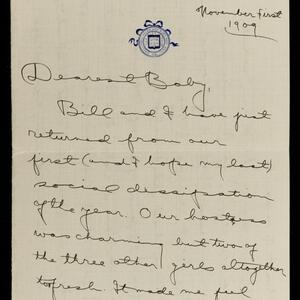 November First
1909
Dearest Baby,
Bill and I have just
returned from our
first (and I hope my last)
social dissipation
of the year. Our hostess
was charming but two of
the three other girls altogether
too fresh. It made me feel